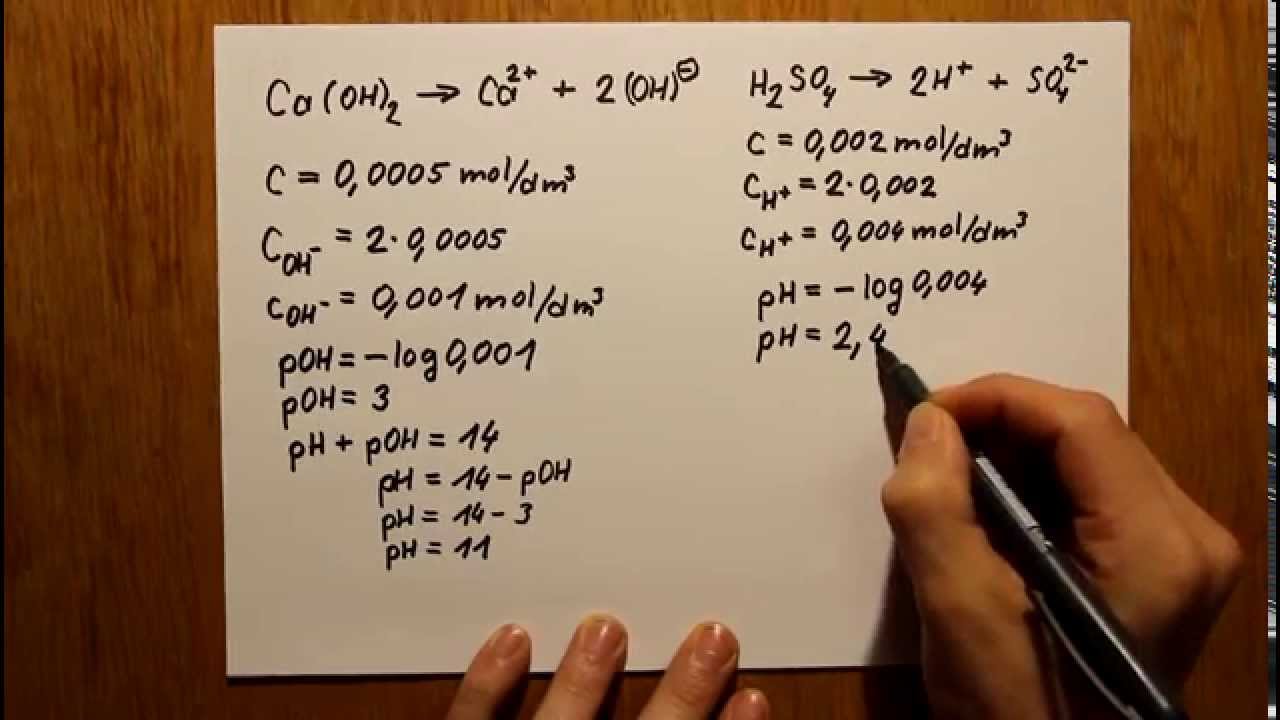 Ca(OH)₂ → Ca²⁺ + 2(OH)⊖
c = 0,0005 mol/dm³
c_OH⁻ = 2·0,0005
c_OH⁻ = 0,001 mol/dm³
pOH = -log 0,001
pOH = 3
pH + pOH = 14
pH = 14 - pOH
pH = 14 - 3
pH = 11
H₂SO₄ → 2H⁺ + SO₄²⁻
c = 0,002 mol/dm³
c_H⁺ = 2·0,002
c_H⁺ = 0,004 mol/dm³
pH = -log 0,004
pH = 2,4